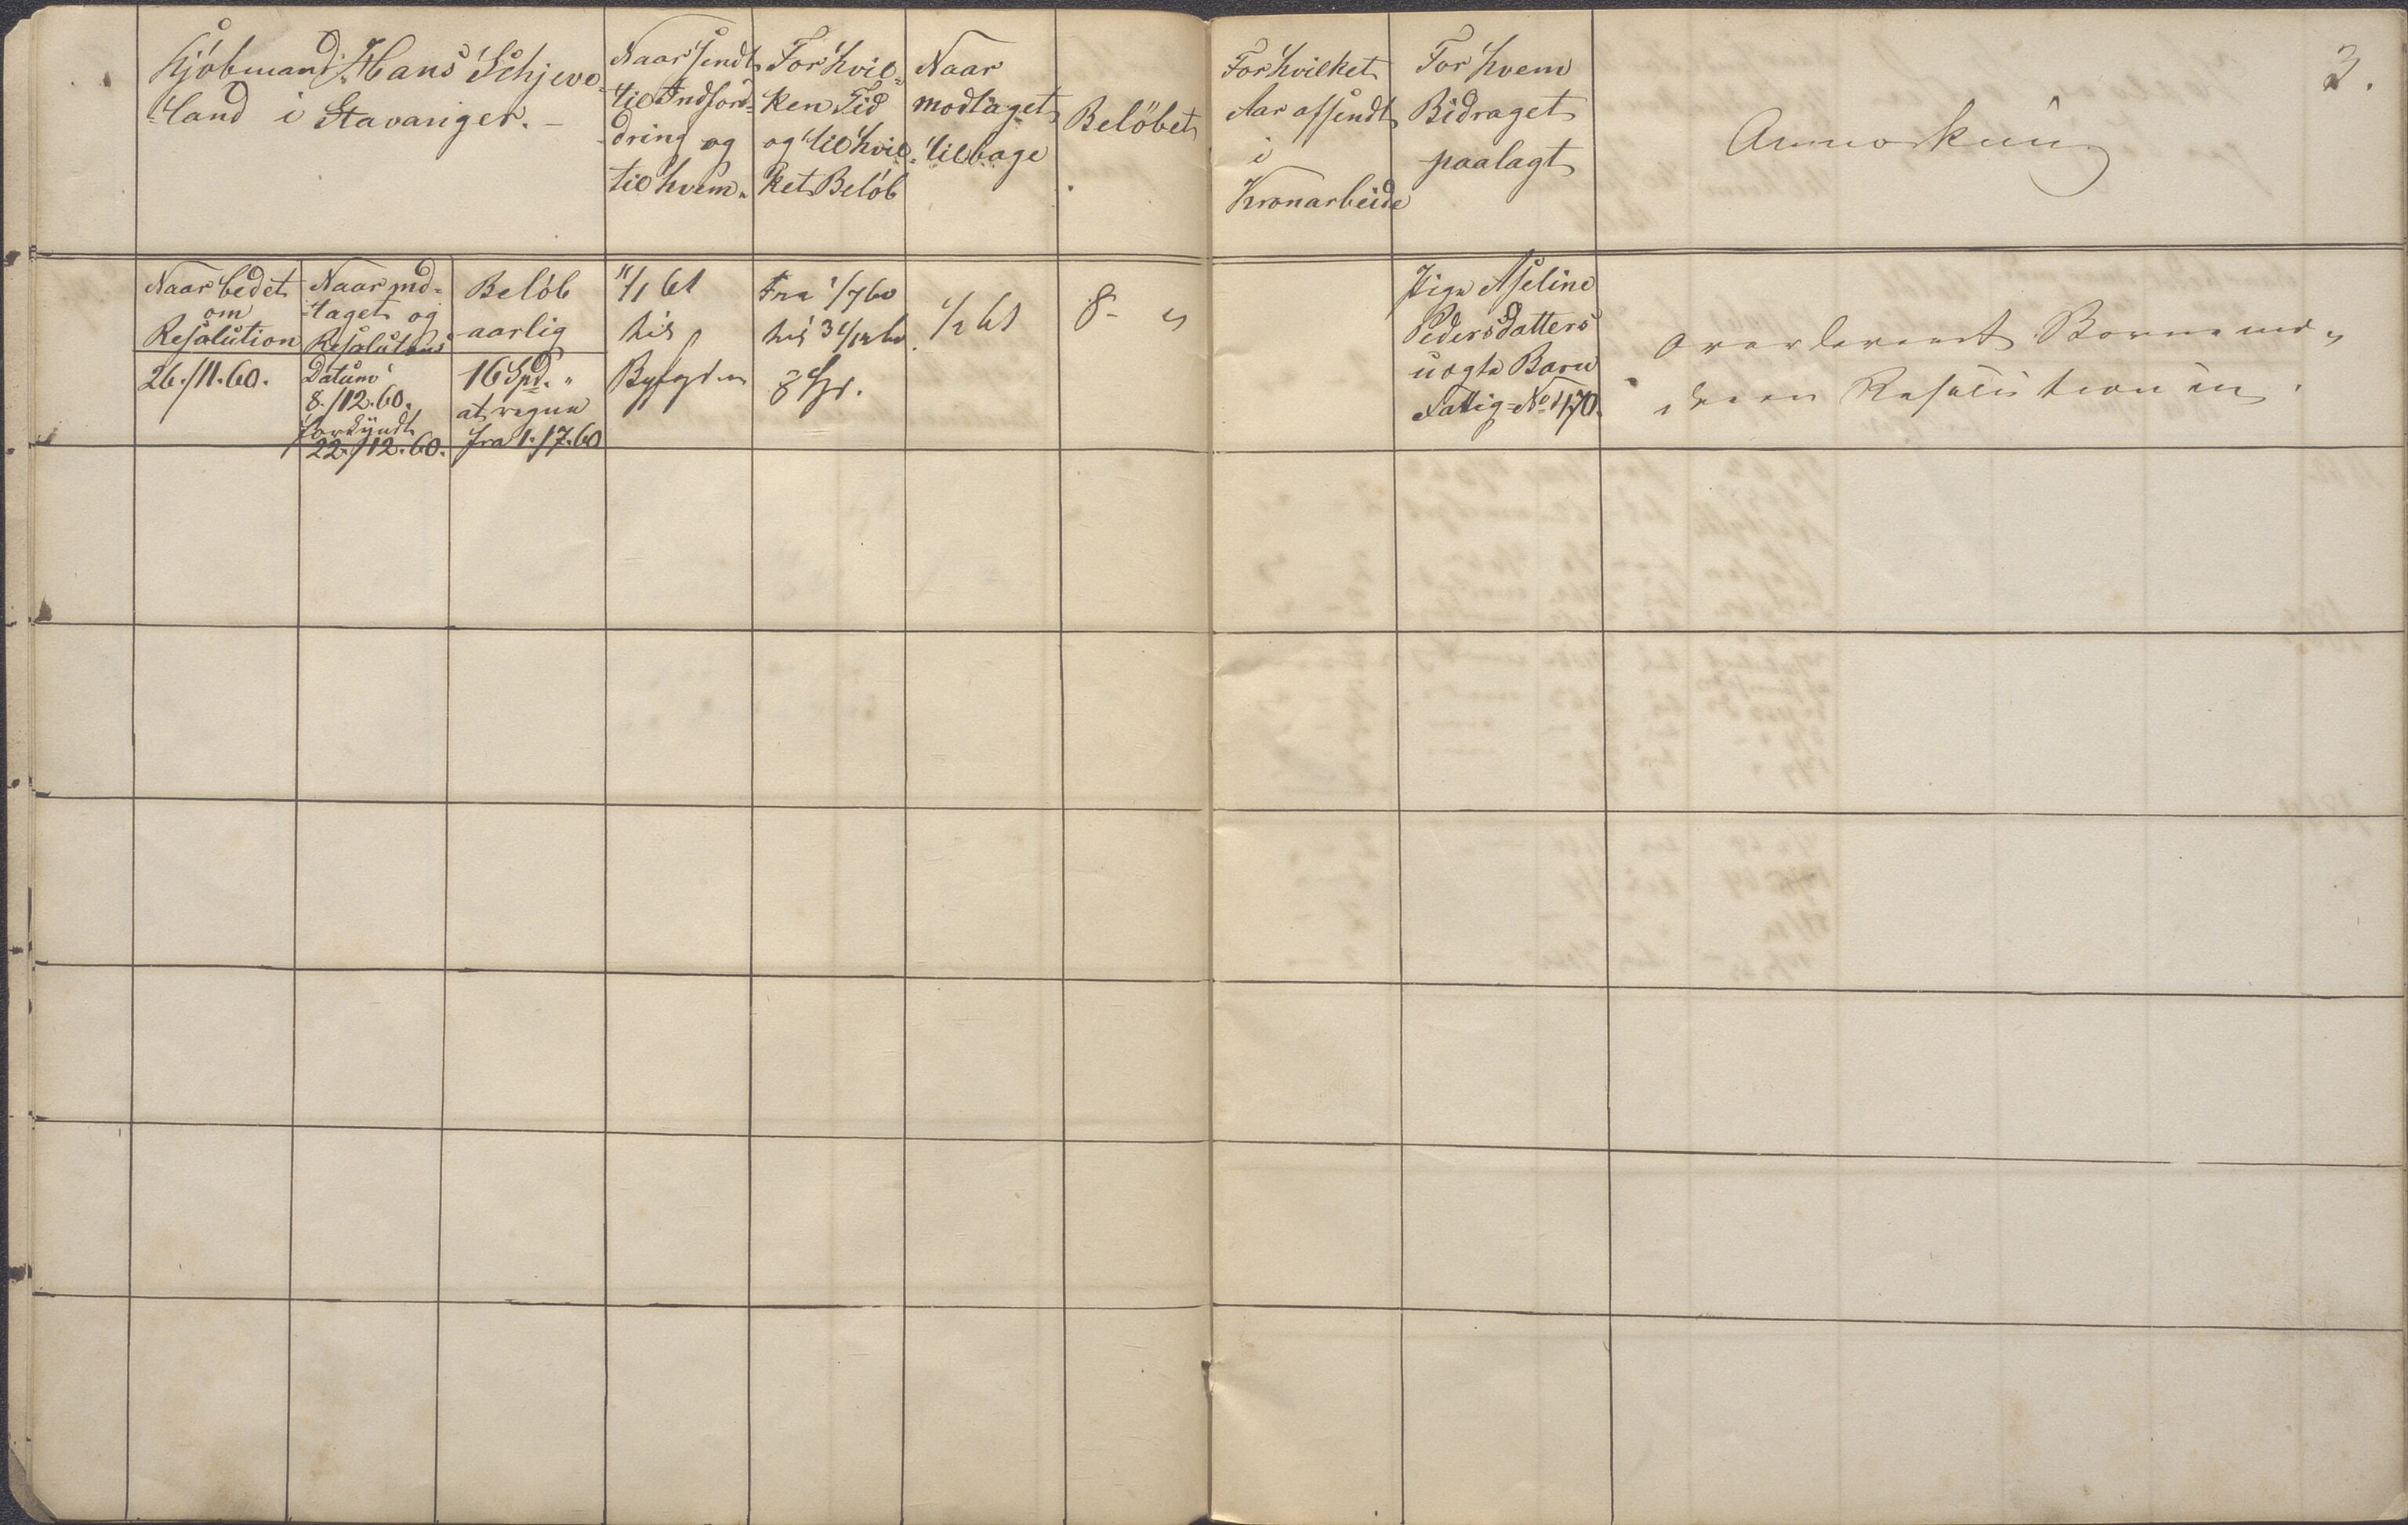 3.
Kjöbmand Hans Schjeve-
land i Stavanger. -
Naar sendt
til Indfor-
dring og
til hvem.
For hvil-
ken Tid
og til hvil-
ket Beløb
Naar
modtaget
tilbage
Beløbet
For hvilket
Aar afsendt
i
Kronarbeide
For hvem
Bidraget
paalagt
Anmærkning
Naar bedet
om
Resolution
26./11.60.
Naar md-
taget og
Resolutions
Datum
8./12.60.
forkyndt
22./12.60.
Beløb
aarlig
16 Spd. "
at regne
fra 1./7.60
11/1 61
til
Byfogden
Fra 1/7 60
til 31/12 60
8 Spd.
1/2 61
8 - "
Pige Aseline
Pedersdatters
uægte Barn
Fattig-No 170.
Overleveret Barnemo-
deren Resolutionen.